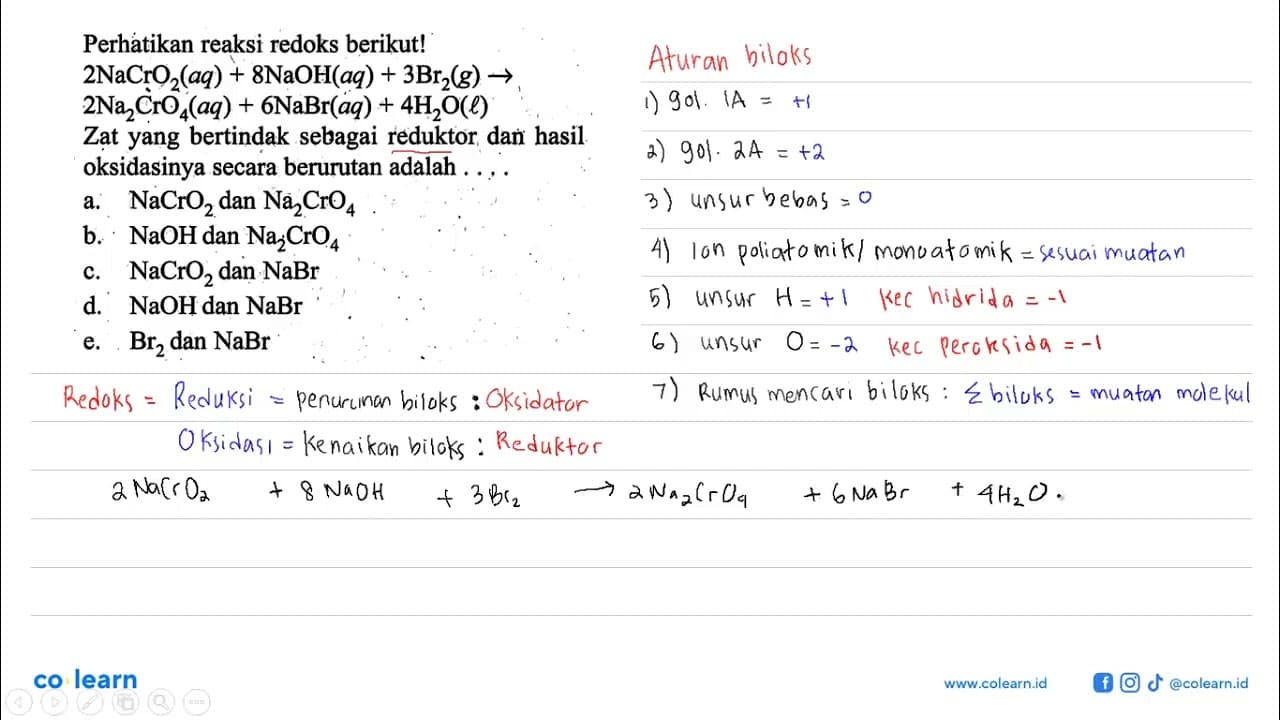 Perhatikan reaksi redoks berikut!
2NaCrO₂(aq) + 8NaOH(aq) + 3Br₂(g) →
2Na₂CrO₄(aq) + 6NaBr(aq) + 4H₂O(ℓ)
Zat yang bertindak sebagai reduktor dan hasil
oksidasinya secara berurutan adalah . . . .
a. NaCrO₂ dan Na₂CrO₄
b. NaOH dan Na₂CrO₄
c. NaCrO₂ dan NaBr
d. NaOH dan NaBr
e. Br₂ dan NaBr
Aturan biloks
1) gol. 1A = +1
2) gol. 2A = +2
3) unsur bebas = 0
4) Ion poliatomik/ monoatomik = sesuai muatan
5) unsur H = +1 kec hidrida = -1
6) unsur O = -2 kec peroksida = -1
7) Rumus mencari biloks : Σ biloks = muatan molekul
Redoks = Reduksi = penurunan biloks : Oksidator
Oksidasi = kenaikan biloks : Reduktor
2 NaCrO₂ + 8 NaOH + 3Br₂ → 2 Na₂CrO₄ + 6 NaBr + 4H₂O.
co learn
www.colearn.id
@colearn.id